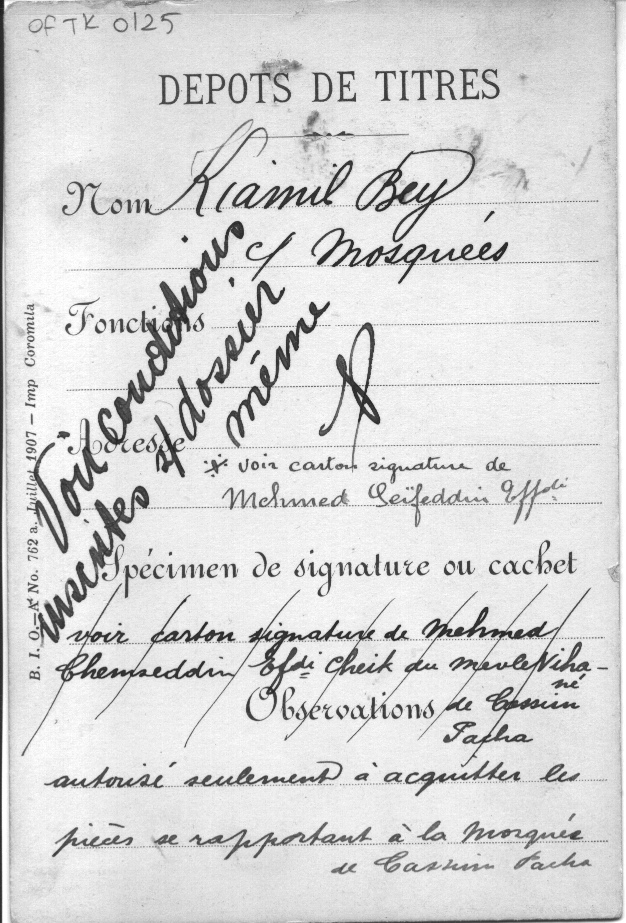 OFTK 0125
DEPOTS DE TITRES
Nom Kiamil Bey
c/ Mosquées
Fonctions
Adresse
Voir conditions
inscrites s/ dossier
même
* voir carton signature de
Mehmed Seïfeddin Effdi
Spécimen de signature ou cachet
voir carton signature de Mehmed
Chemseddin Efdi Cheik du mevleviha-
né
Observations de Cassim
Pacha
autorisé seulement à acquitter les
pièces se rapportant à la Mosquée
de Cassim Pacha
B. I. O.—At No. 762 a. Juillet 1907 — Imp Coromila